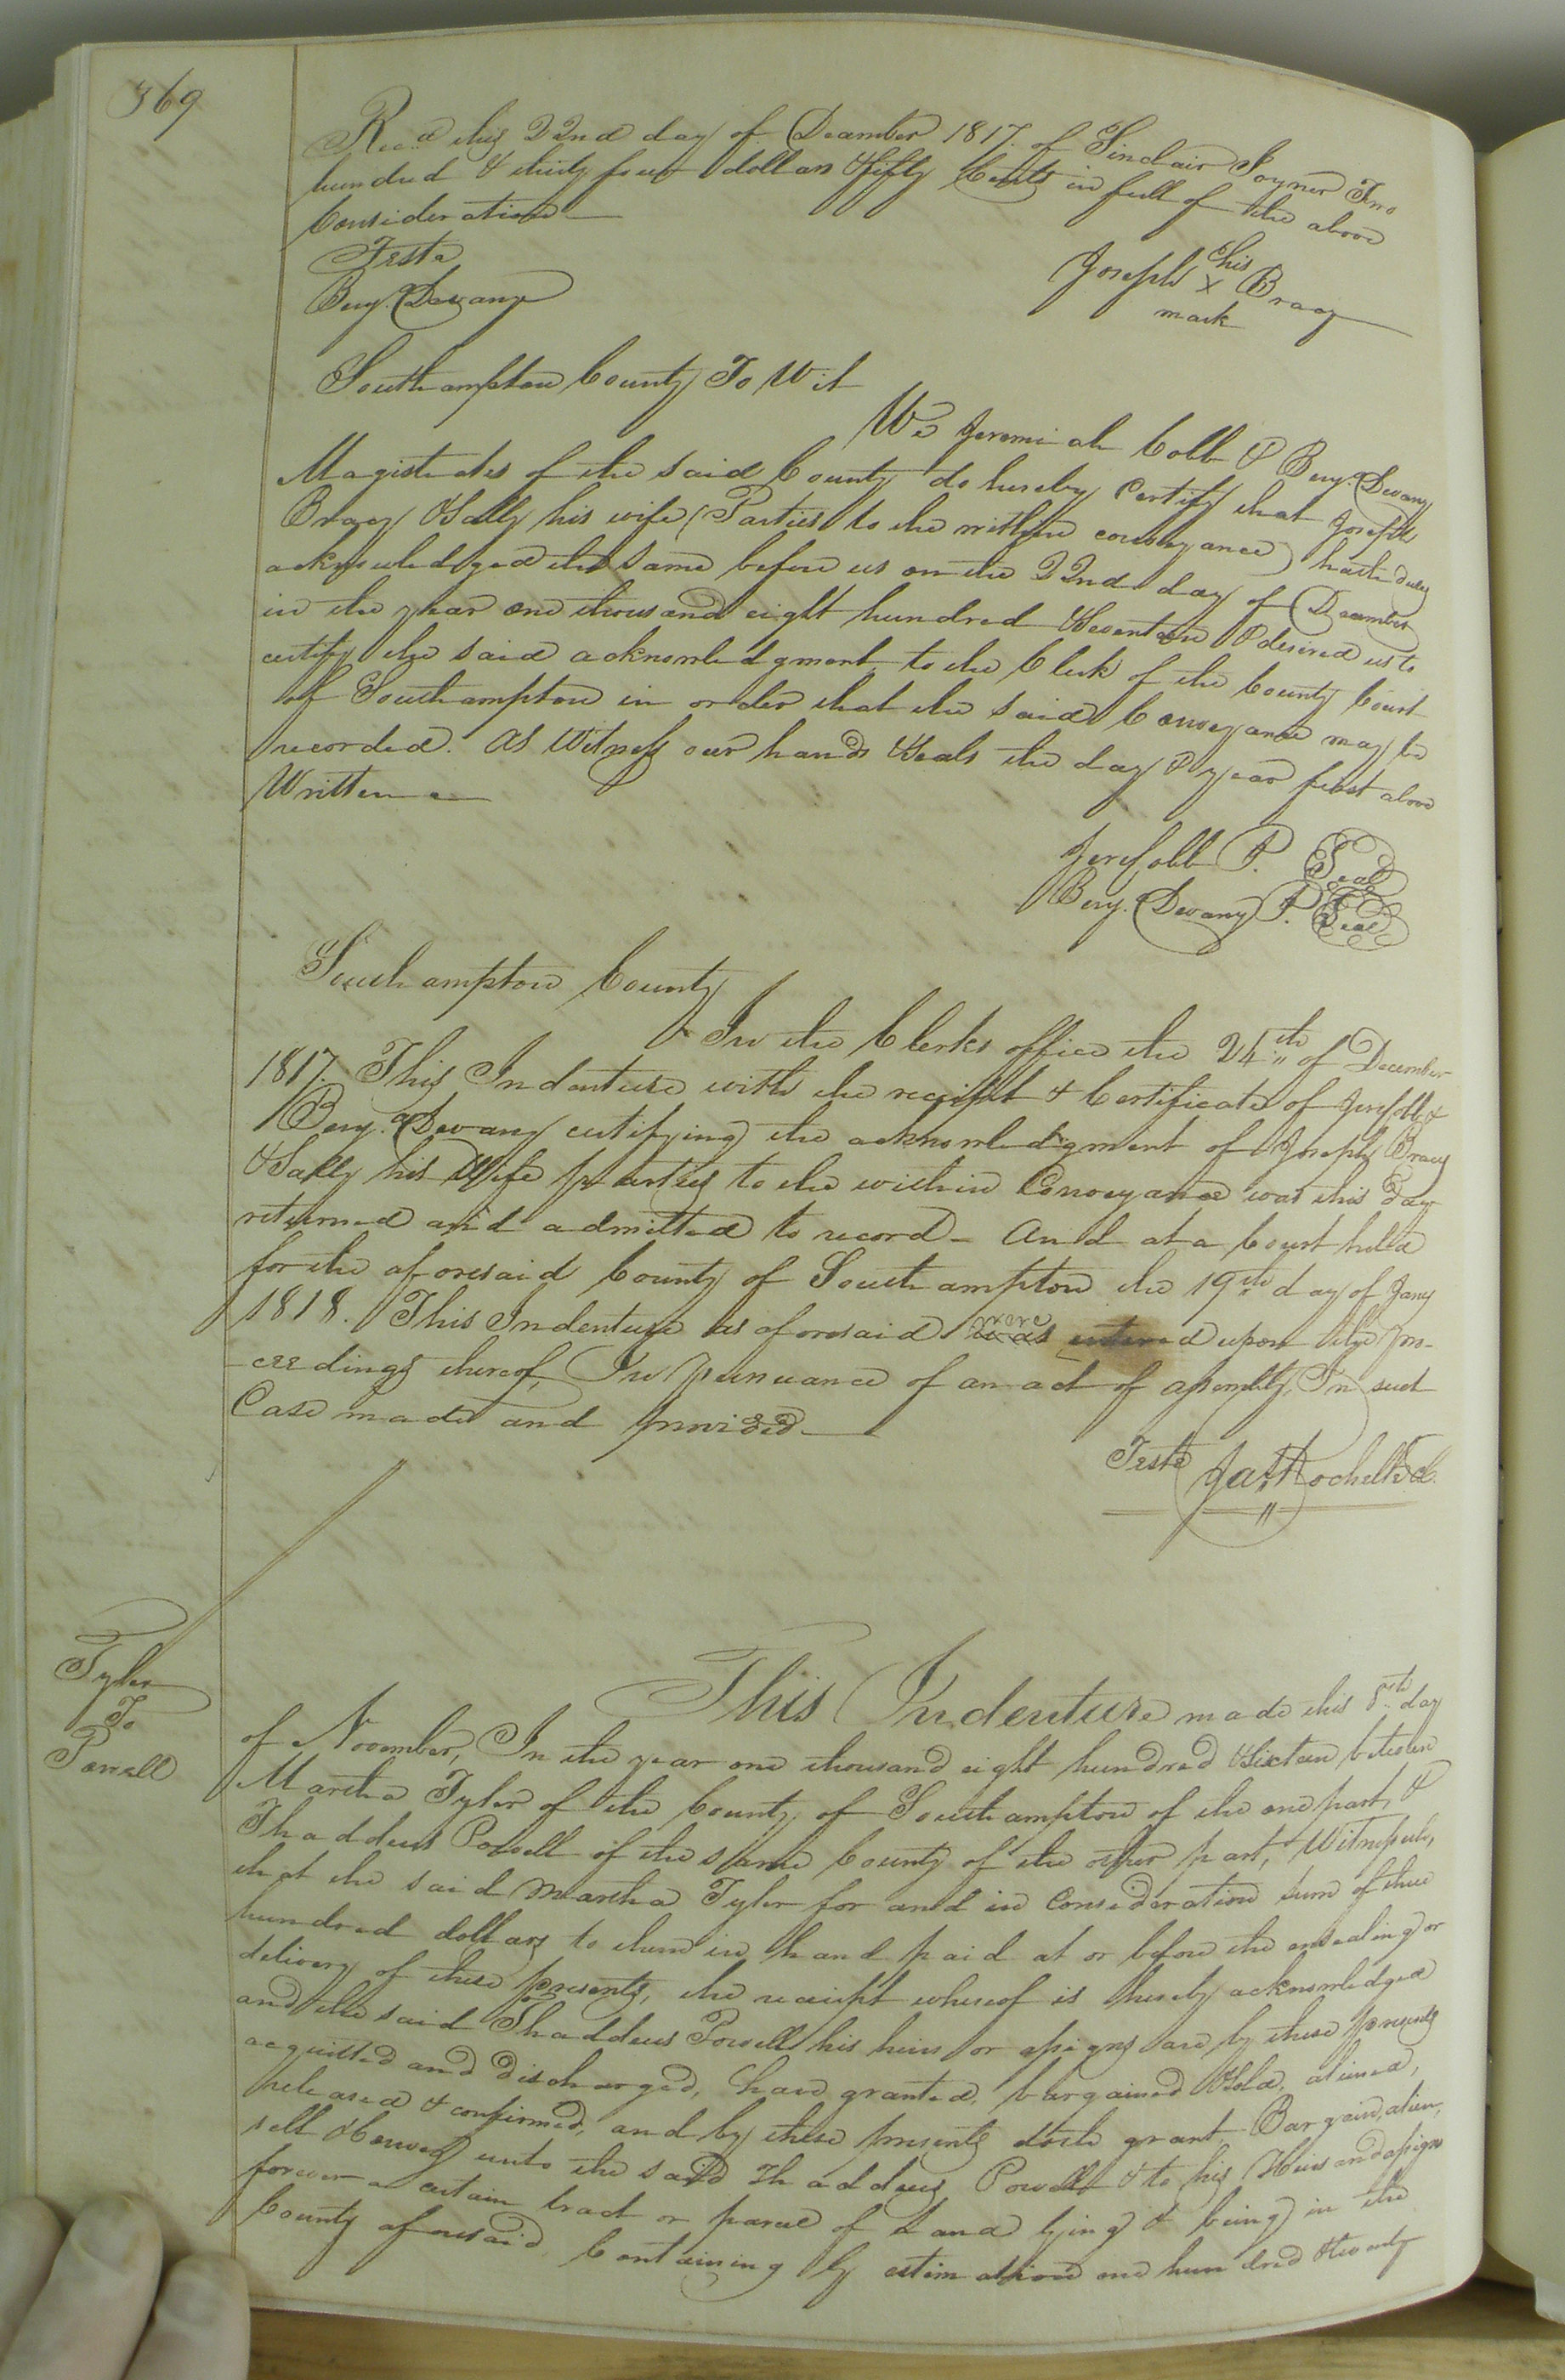 369
Rec.d this 22nd day of December 1817. of Sinclair Joyner Two
hundred & thirty four dollars & fifty Cents in full of the above
Consideration
Teste
Benj. Devany
Joseph his x mark Bracy
Southampton County To Wit
We Jeremiah Cobb & Benj. Devany
Magistrates of the said County do hereby Certify that Joseph
Bracy & Sally his wife (Parties to the within conveyance) hath duly
acknowledged the same before us on the 22nd day of December
in the year one thousand eight hundred & seventeen & desired us to
certify the said acknowledgment to the Clerk of the County Court
of Southampton in order that the said Conveyance may be
recorded. As Witness our hands & Seals the day & year first above
Written
Jere Cobb P. Seal
Benj. Devany P. Seal
Southampton County
In the Clerks office the 24th of December
1817. This Indenture with the receipt & Certificate of Jere Cobb &
Benj. Devany certifying the acknowledgment of Joseph Bracy
& Sally his Wife parties to the within Conveyance was this Day
returned and admitted to record - And at a Court held
for the aforesaid County of Southampton the 19th day of Jany
1818. This Indenture as aforesaid was were entered upon the pro-
ceedings thereof, In pursuance of an act of assembly, In such
Case made and provided
Teste Jas Rochelle Cl.
Tyler
To
Powell
This Indenture made this 8th day
of November, In the year one thousand eight hundred & sixteen between
Martha Tyler of the County of Southampton of the one part, &
Thaddeus Powell of the same County of the other part, Witnesseth,
that the said Martha Tyler for and in Consideration sum of three
hundred dollars to them in hand paid at or before the ensealing or
delivery of these presents, the receipt whereof is hereby acknowledged
and the said Thaddeus Powell his heirs or assigns are by these presents
acquitted and Discharged, have granted, bargained & sold, aliened,
released & confirmed, and by these presents doth grant, Bargain, alien,
sell & convey unto the said Thaddeus Powell & to his Heirs and assigns
forever a certain tract or parcel of Land lying & being in the
County aforesaid Containing by estimation one hundred & twenty